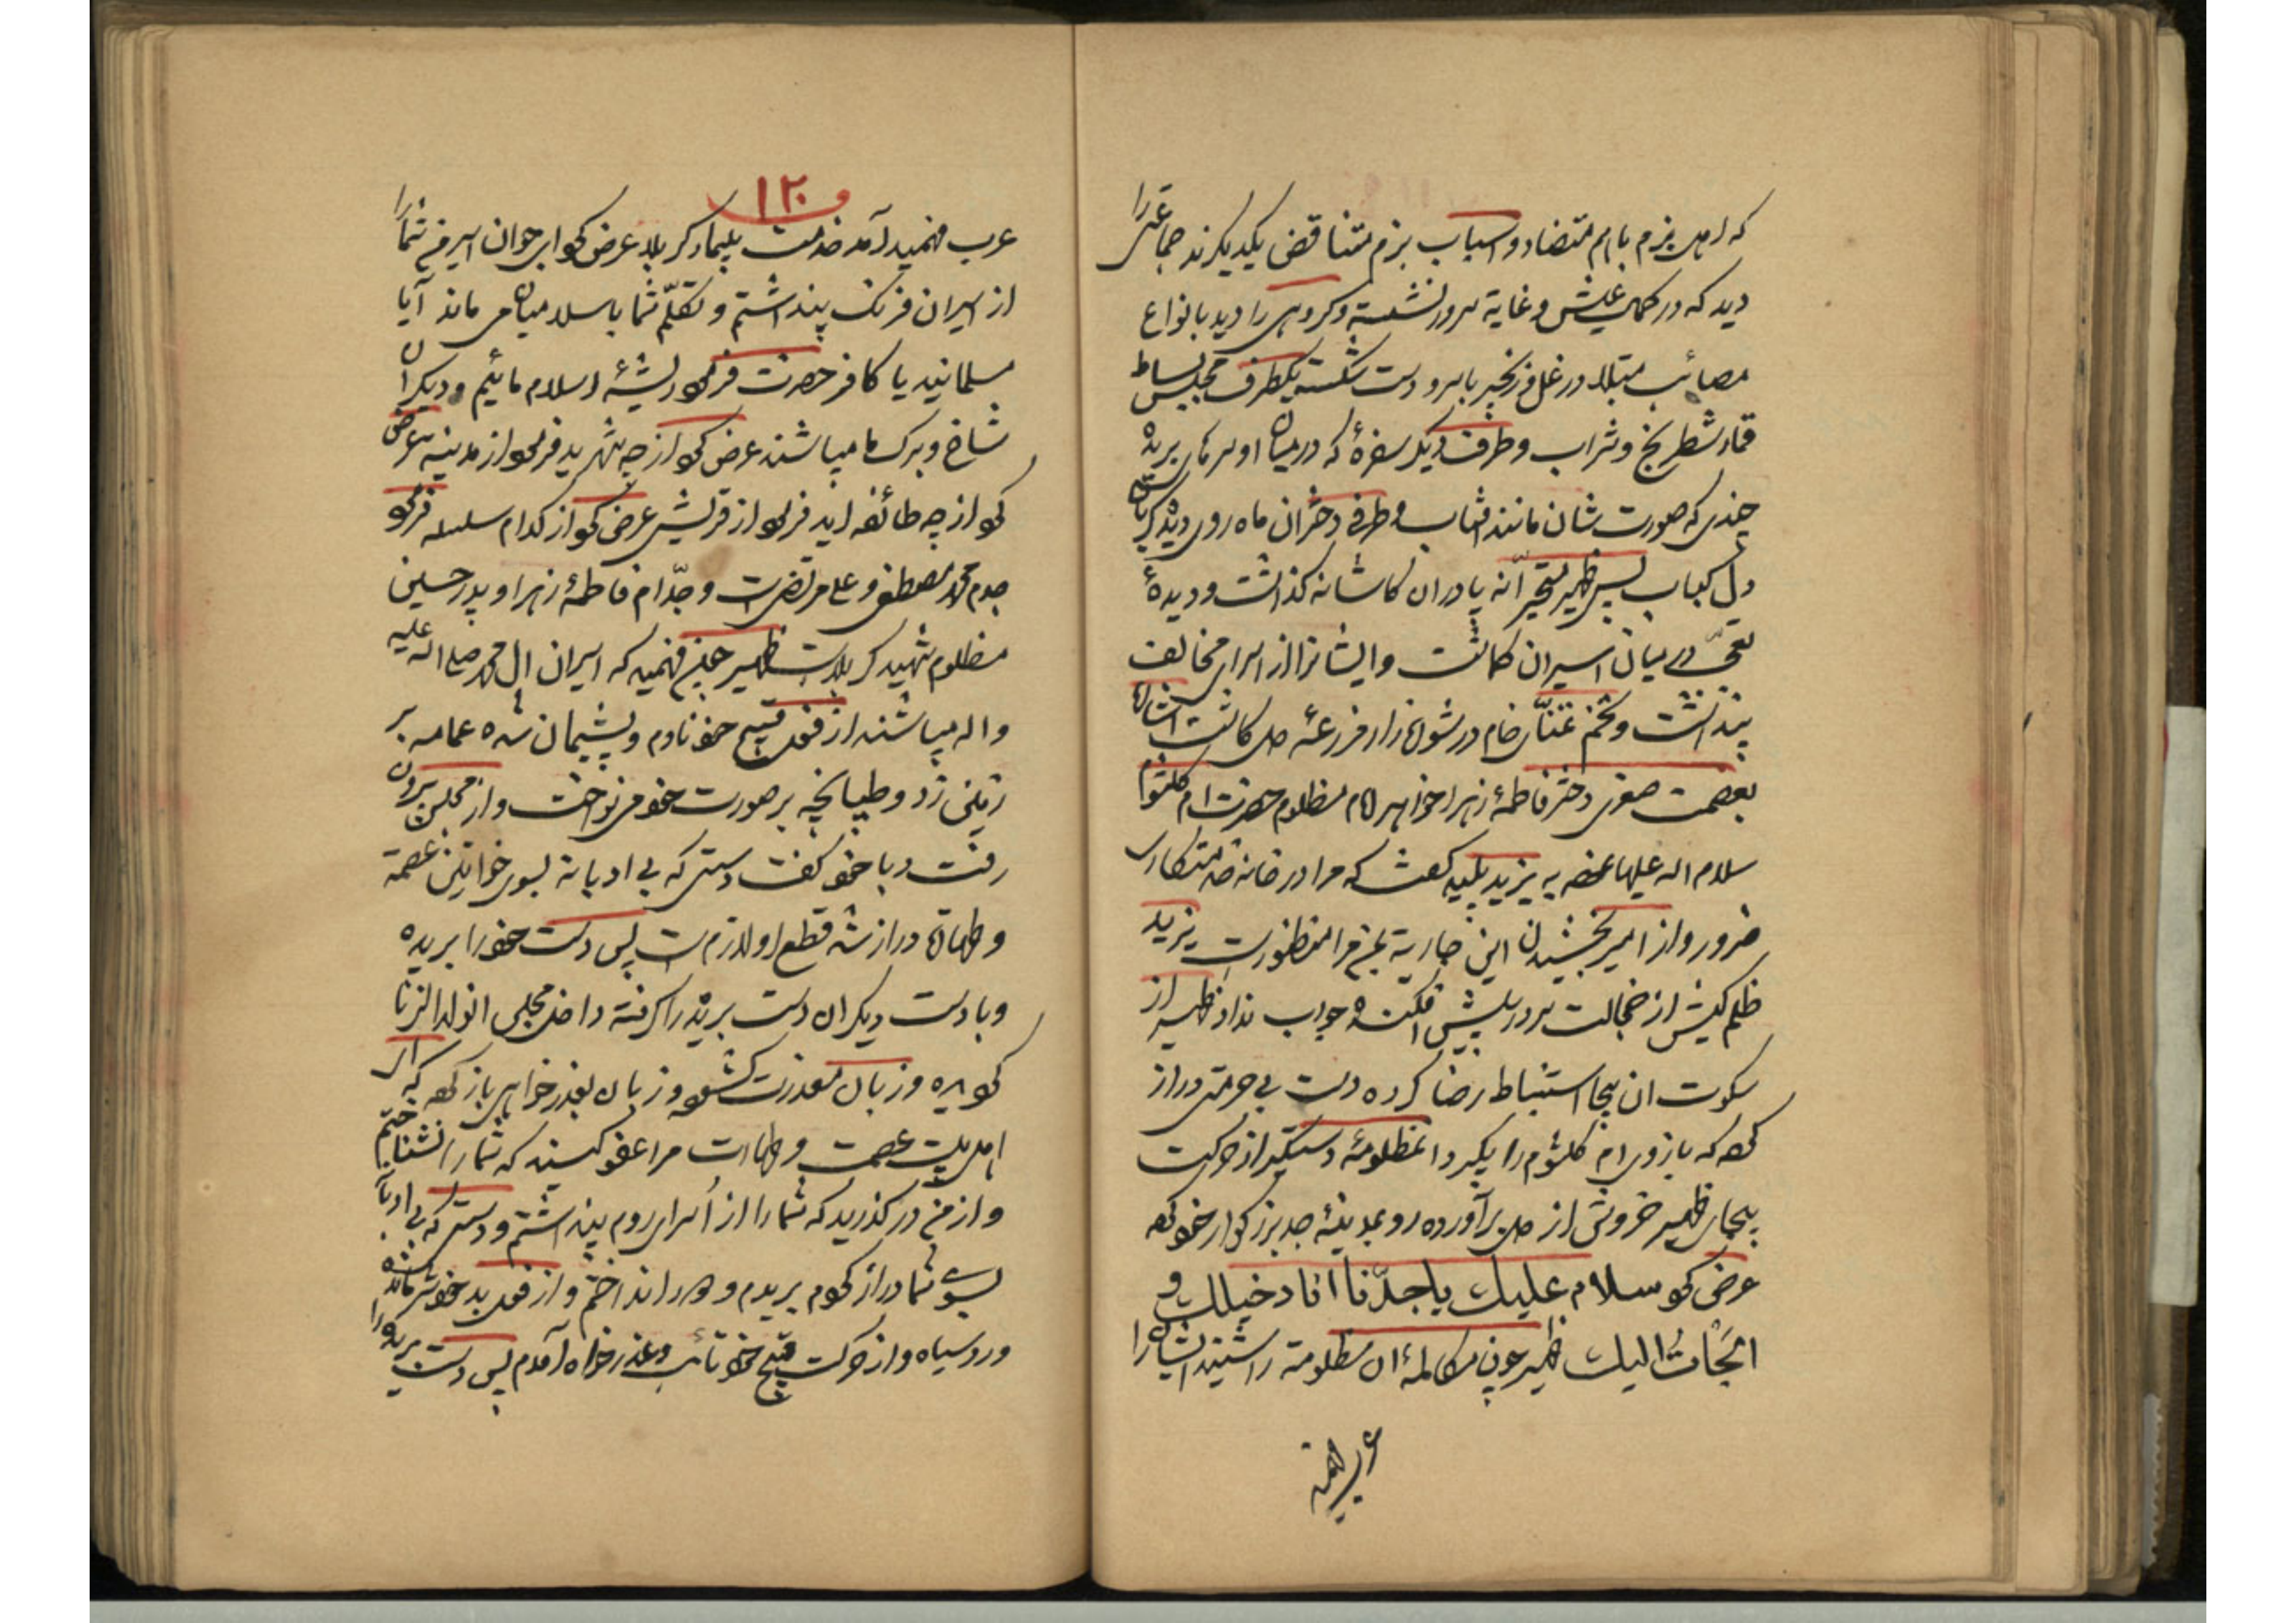 که اهل بزم باهم متضاد و اسباب بزم متناقض یکدیگرند جماعتی را
دید که در کمال عیش و غایة سرور نشسته و گروهی را دید بانواع
مصائب مبتلا در غل و زنجیر با سر و دست شکسته یکطرف مجلس بساط
قمار شطرنج و شراب و طرف دیگر سفرهٔ که در میان او سرهای بریدهٔ
چندی که صورت شان مانند افتاب و طرفی دختران ماه روی دیده گریان
دل کباب پس ظهیر متحیرانه پا در ان کاشانه گذاشت و دیدهٔ
تعجب در میان اسیران گماشت و ایشانرا از اسرای مخالف
پنداشت و تخم تمنای خام در شوره زار مزرعهٔ دل کاشت اشاره
بعصمت صغری دختر فاطمهٔ زهرا خواهر امام مظلوم حضرت ام کلثوم
سلام اله علیها نموده به یزید پلید گفت که مرا در خانه خدمتکاری
ضرور و از امیر بخشیدن این جاریة بمن مرا منظورست یزید
ظلم کیش از خجالت سر در پیش افکنده جواب نداد ظهیر از
سکوت ان بیحیا استنباط رضا کرده دست بی حرمتی دراز
کرد که بازوی ام کلثوم را بگیرد انمظلومهٔ دستگیر از حرکت
بیجای ظهیر خروش از دل برآورده رو بمدینهٔ جد بزرگوار خود کرد
عرض کرد سلام علیك یا جدّنا انا دخیلك و
التجأت الیك ظهیر چون مکالمهٔ ان مظلومة را شنید ایشان را
عرب فهمید
۱۲۰
عرب فهمید آمد خدمت بیمار کربلا عرض کرد ای جوان اسیر من شما را
از اسیران فرنگ پنداشتم و تکلّم شما باسلامیان می ماند آیا
مسلمانید یا کافر حضرت فرمود ریشهٔ اسلام مائیم و دیگران
شاخ و برگ ما میباشند عرض کرد از چه شهرید فرمود از مدینه عرض
کرد از چه طائفه اید فرمود از قریش عرض کرد از کدام سلسله فرمود
جدم محمد مصطفی و علی مرتضی است و جدّه ام فاطمهٔ زهرا و پدر حسین
مظلوم شهید کربلاست ظهیر چنین فهمید که اسیران ال محمد صلی اله علیه
و اله میباشند از فعل قبیح خود نادم و پشیمان شده عمامه بر
زمین زد و طپانچه بر صورت خود می نواخت و از مجلس بیرون
رفت و با خود گفت دستی که بی ادبانه بسوی خواتین عصمة
و طهارة دراز شد قطع او لازم است پس دست خود را بریده
و با دست دیگر ان دست بریده را گرفته داخل مجلس انولد الزنا
گردیده و زبان معذرت گشود و زبان بعذر خواهی باز کرد که ای
اهل بیت عصمت و طهارت مرا عفو کنید که شما را نشناختم
و از من در گذرید که شما را از اُسرای روم پنداشتم و دستی که بی ادبانه
بسوی شما دراز کردم بریدم و دور انداختم و از فعل بد خود شرمنده
و رو سیاه و از حرکت قبیح خود تائب و عذر خواه آمدم پس دست بریده را